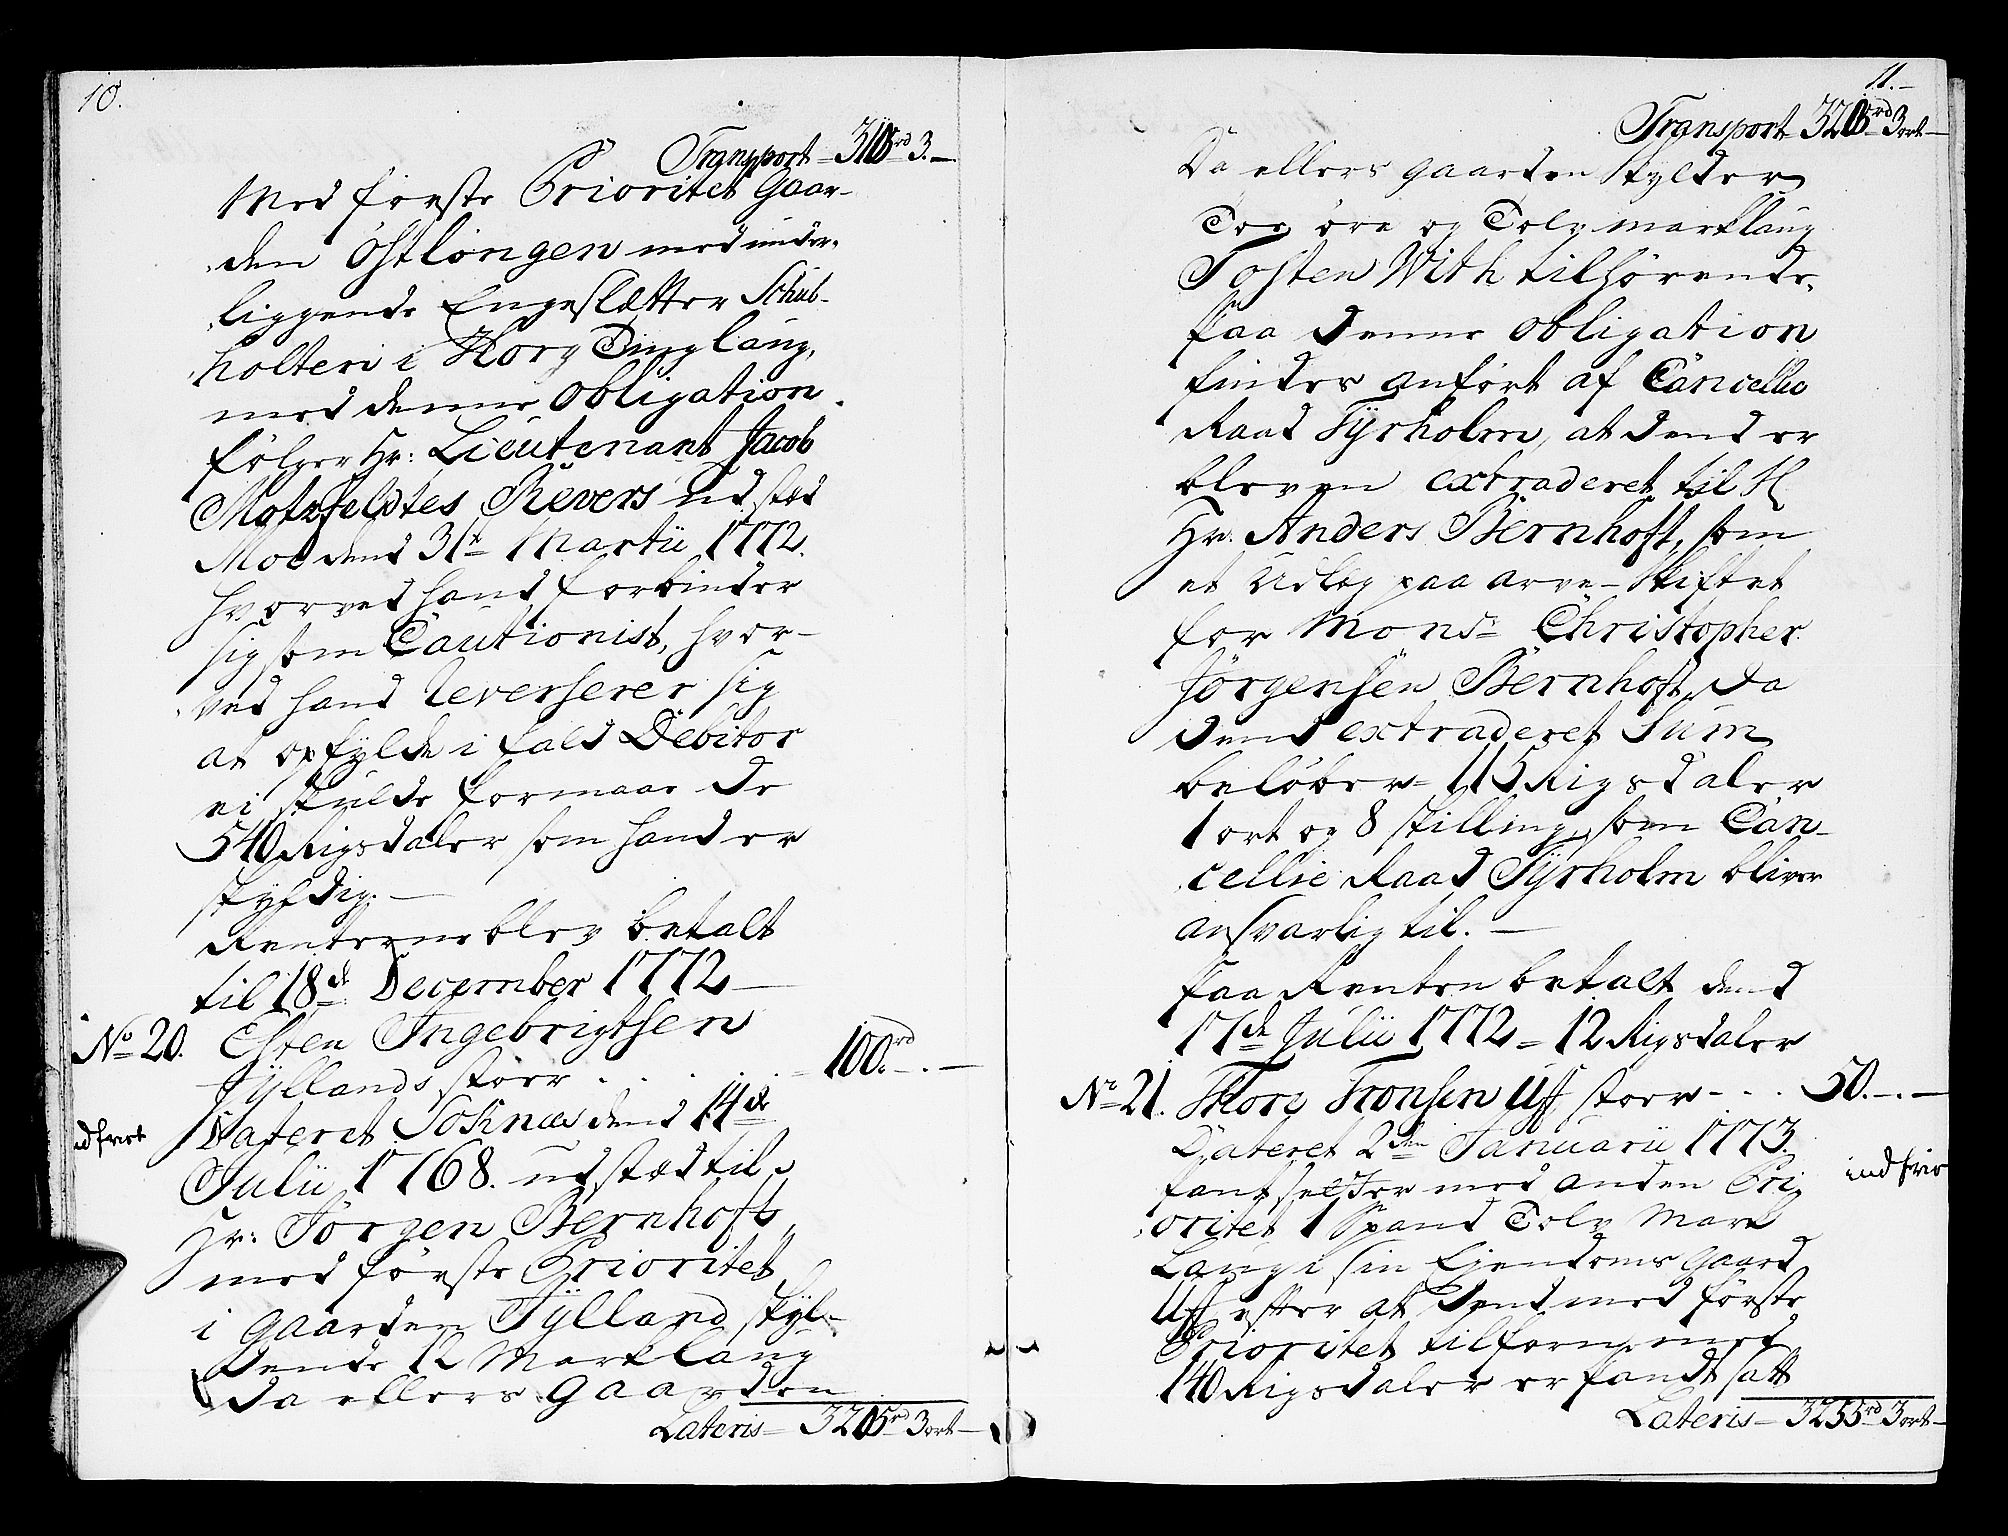 10.
Transport - 3105rd 3.-
Med første Prioritet Gaar-
den Østlöngen med under-
liggende Engeslætter Schul-
holten i Horg Tinglaug,
med denne Obligation
følger Hr: Lieutenant Jacob
Motzfeldtes Revers ud stæd
Moe dend 31te Martii 1772.
hvorved hand forbinder
sig som Cautionist, hvor-
ved hand reverserer sig
at opfylde i fald Debitor
ei skulde formaae de
540 Rigsdaler som hand er
skyldig. -
Renterne blev betalt
til 18de December 1772 -
No 20. Esten Ingebrigtsen
Jyllands stoer . . . . . = 100.rd -. -
indfriet
Dateret Soknæs dend 14de
Julii 1768. udstæd til
Hr: Jörgen Bernhoft,
med første Prioritet
i Gaarden Jylland skyl-
dende 12 Marklaug
da ellers Gaarden
Lateris - 3205rd 3ort -
11. -
Transport 3205rd 3ort -
Da ellers gaarden skylder
Toe øre og Tolv marklaug
Tosten With tilhörende.
Paa denne Obligation
findes anført af Cancellie
Raad Tyrholm, at dend er
bleven extraderet til Sl.
Hr. Anders Bernhoft, som
et Udlæg paa arve-Skiftet
for Monsr Christopher
Jörgensen Bernhoft, da
dend extraderet Sum
belöber = 115 Rigsdaler
1 ort og 8 skilling, som Can-
cellie Raad Tyrholm bliver
ansvarlig til. -
Paa Renten betalt dend
17de Julii 1772 = 12 Rigsdaler
No 21. Thore Tronsen Uff stoer - . . 50. -. -
Dateret 2den Januarii 1773.
indfrie
Pantsetter med anden Pri-
oritet 1 Spand Tolv Mark
Laug i sin Ejendoms Gaard
Uff efter at dend med første
Prioritet tilforn med
140 Rigsdaler er pandtsatt
Lateris - 3255rd 3ort -